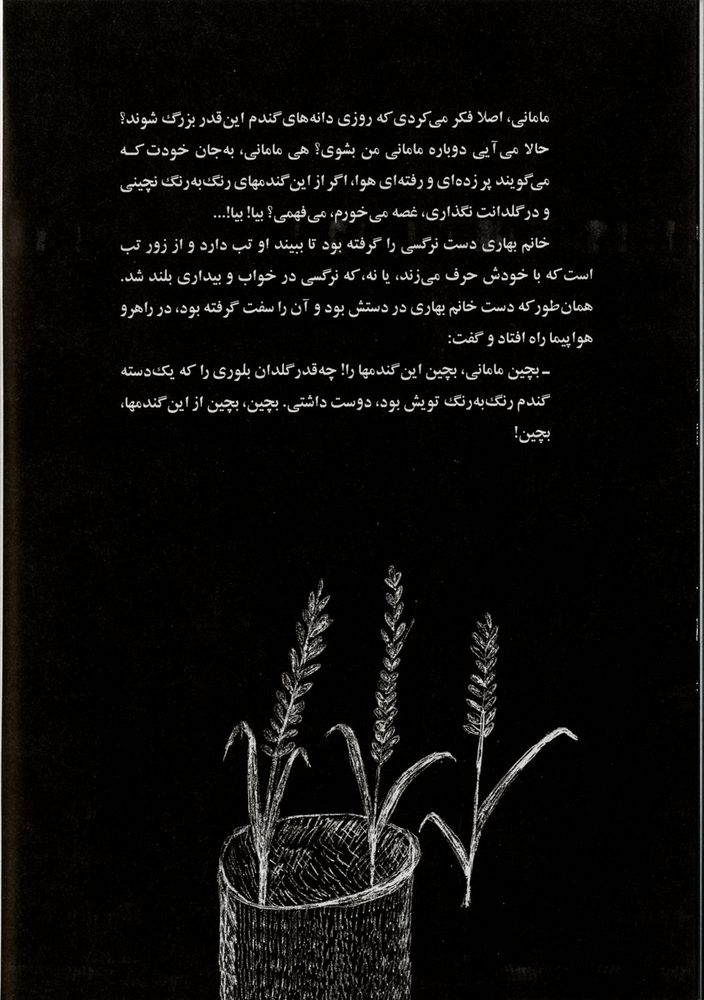 مامانی، اصلا فکر می‌کردی که روزی دانه‌های گندم این‌قدر بزرگ شوند؟
حالا می‌آیی دوباره مامانی من بشوی؟ هی مامانی، به‌جان خودت کـه
می‌گویند پر زده‌ای و رفته‌ای هوا، اگر از این گندمهای رنگ‌به‌رنگ نچینی
و در گلدانت نگذاری، غصه می‌خورم، می‌فهمی؟ بیا! بیا!...
خانم بهاری دست نرگسی را گرفته بود تا ببیند او تب دارد و از زور تب
است که با خودش حرف می‌زند، یا نه، که نرگسی در خواب و بیداری بلند شد.
همان‌طور که دست خانم بهاری در دستش بود و آن را سفت گرفته بود، در راهرو
هواپیما راه افتاد و گفت:
ـ بچین مامانی، بچین این گندمها را! چه‌قدر گلدان بلوری را که یک‌دسته
گندم رنگ‌به‌رنگ تویش بود، دوست داشتی. بچین، بچین از این گندمها،
بچین!